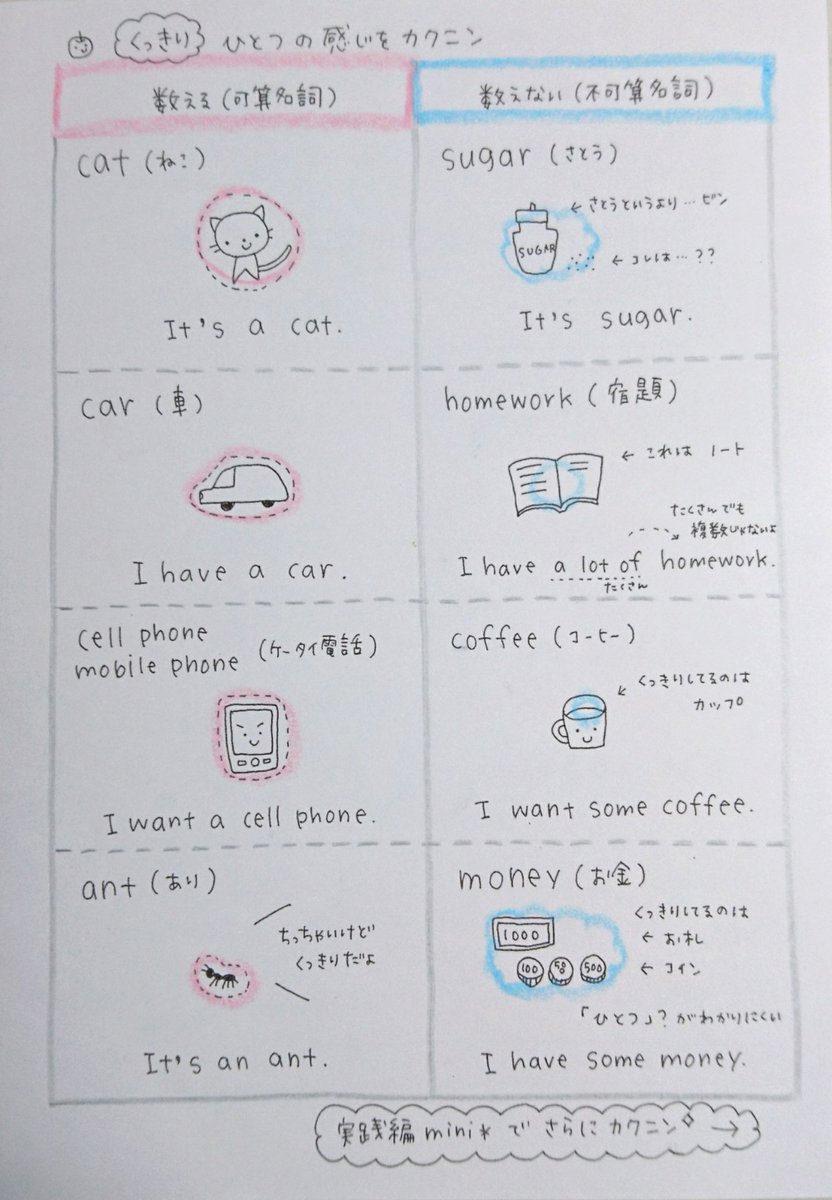 くっきり ひとつの感じをカクニン
数える(可算名詞)
数えない(不可算名詞)
cat(ねこ)
It's a cat.
sugar(さとう)
←さとうというより…ビン
SUGAR
←コレは…??
It's sugar.
car(車)
I have a car.
homework(宿題)
←これは ノート
たくさんでも
複数じゃないよ
I have a lot of homework.
たくさん
cell phone
mobile phone (ケータイ電話)
I want a cell phone.
coffee(コーヒー)
くっきりしてるのは
カップ
I want some coffee.
ant(あり)
ちっちゃいけど
くっきりだよ
It's an ant.
money(お金)
くっきりしてるのは
←お札
1000
100 50 500
←コイン
「ひとつ」?がわかりにくい
I have some money.
実践編mini*でさらにカクニン→